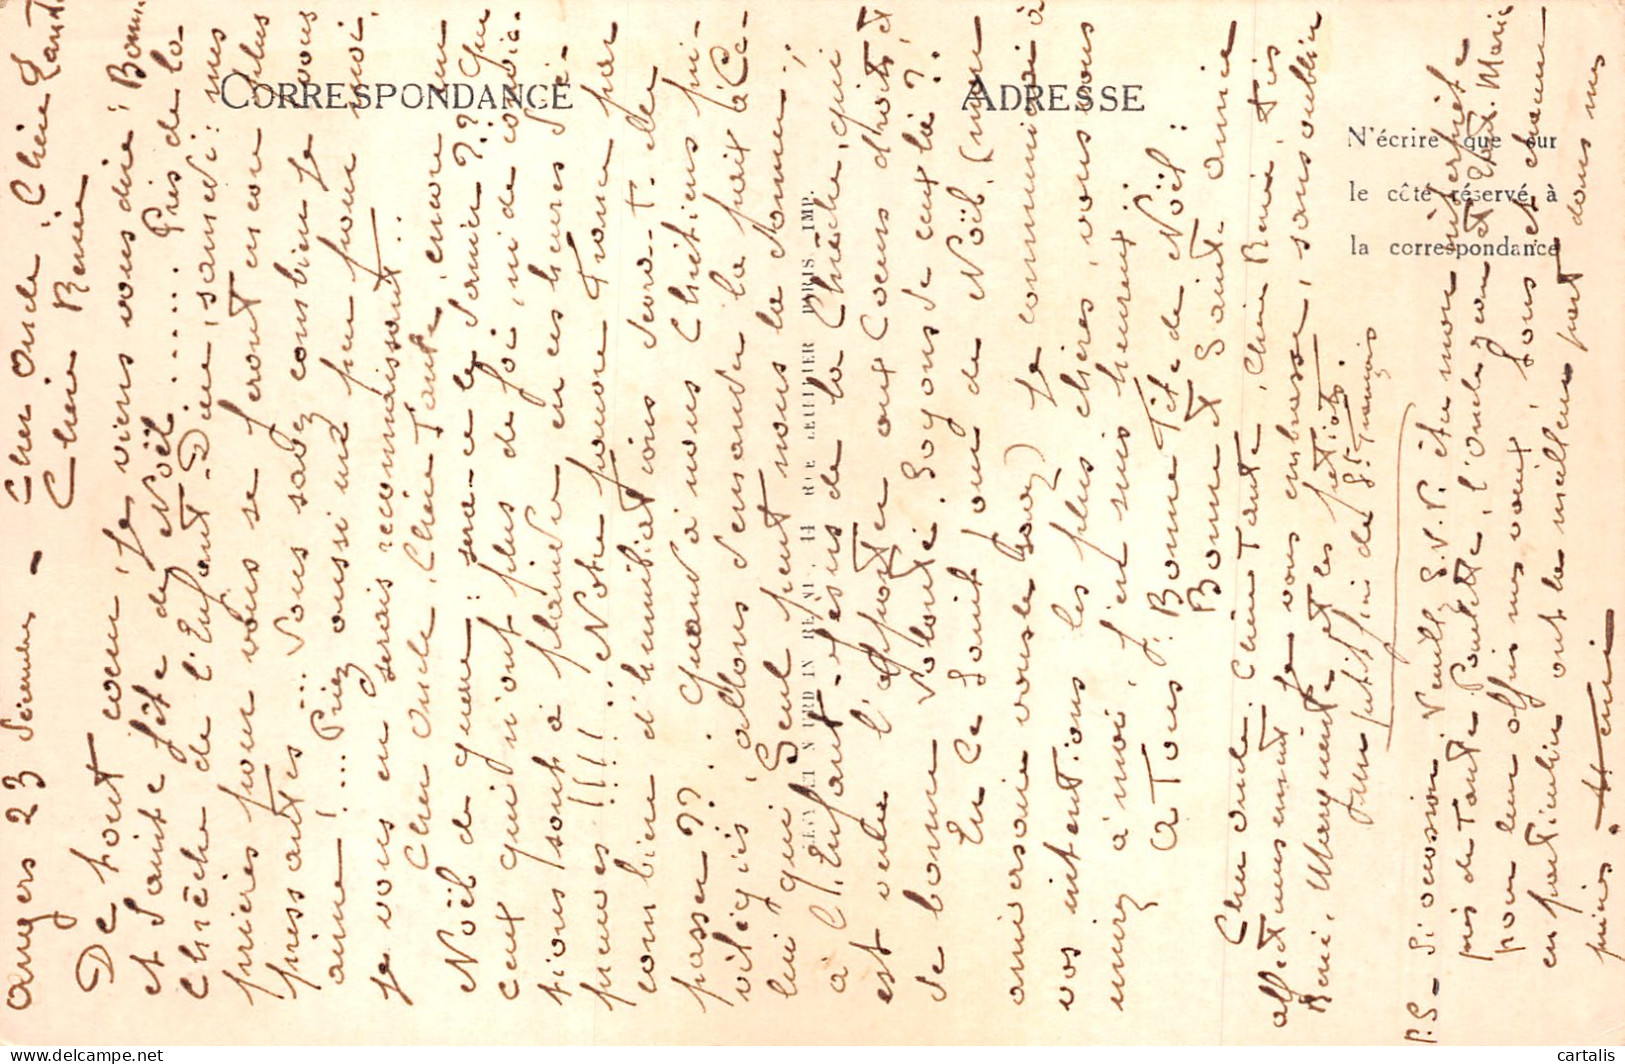 CORRESPONDANCE
ADRESSE
N'écrire que sur
le côté réservé à
la correspondance
LEVY ET NEURDEIN REUNIS. 44 RUE LETELLIER PARIS. IMP.
Angers 23 Décembre – Cher Oncle, Chère Tante
Chère Renée
De tout coeur, je viens vous dire: Bonne
et Sainte fête de Noël...... Près de la
Crèche de l'Enfant-Dieu, samedi: mes
prières pour vous se feront encore plus
pressantes... Vous savez combien je vous
aime!... Priez aussi un peu pour moi,
je vous en serais reconnaissant..
Cher Oncle, Chère Tante, encore un
Noël de guerre: sera-ce le dernier?? Que
ceux qui n'ont plus de foi, ni de convic-
tions sont à plaindre en ces heures d'é-
preuves!!!!.. Notre pauvre France par
combien d'humiliations sera-t-elle
passée??.. Quand à nous Chrétiens pri-
vilégiés, allons demander la paix à Ce-
lui qui Seul peut nous la donner;
à l'Enfant-Jésus de la Crèche, qui
est venu l'apporter aux Coeurs droits et
de bonne volonté. Soyons de ceux-là!:
En ce Saint jour de Noël, (mon
anniversaire vous le savez) je communierai à
vos intentions les plus chères, vous vous
unirez à moi, j'en suis heureux!
A Tous: Bonne Fête de Noël:
Bonne et Sainte année
Cher oncle, Chère Tante, Chère Renée, très
affectueusement je vous embrasse, sans oublier
René, Marguerite et les petiots.
Jean petit frère de St François
P.S – Si occasion. Veuillez S.V.P. être mon interprète
près de Tante Paulette, l'oncle Jean et Tante Marie
pour leur offrir mes voeux, Tous et chacun
en particulier ont la meilleure part dans mes
prières. Henri
cartalis